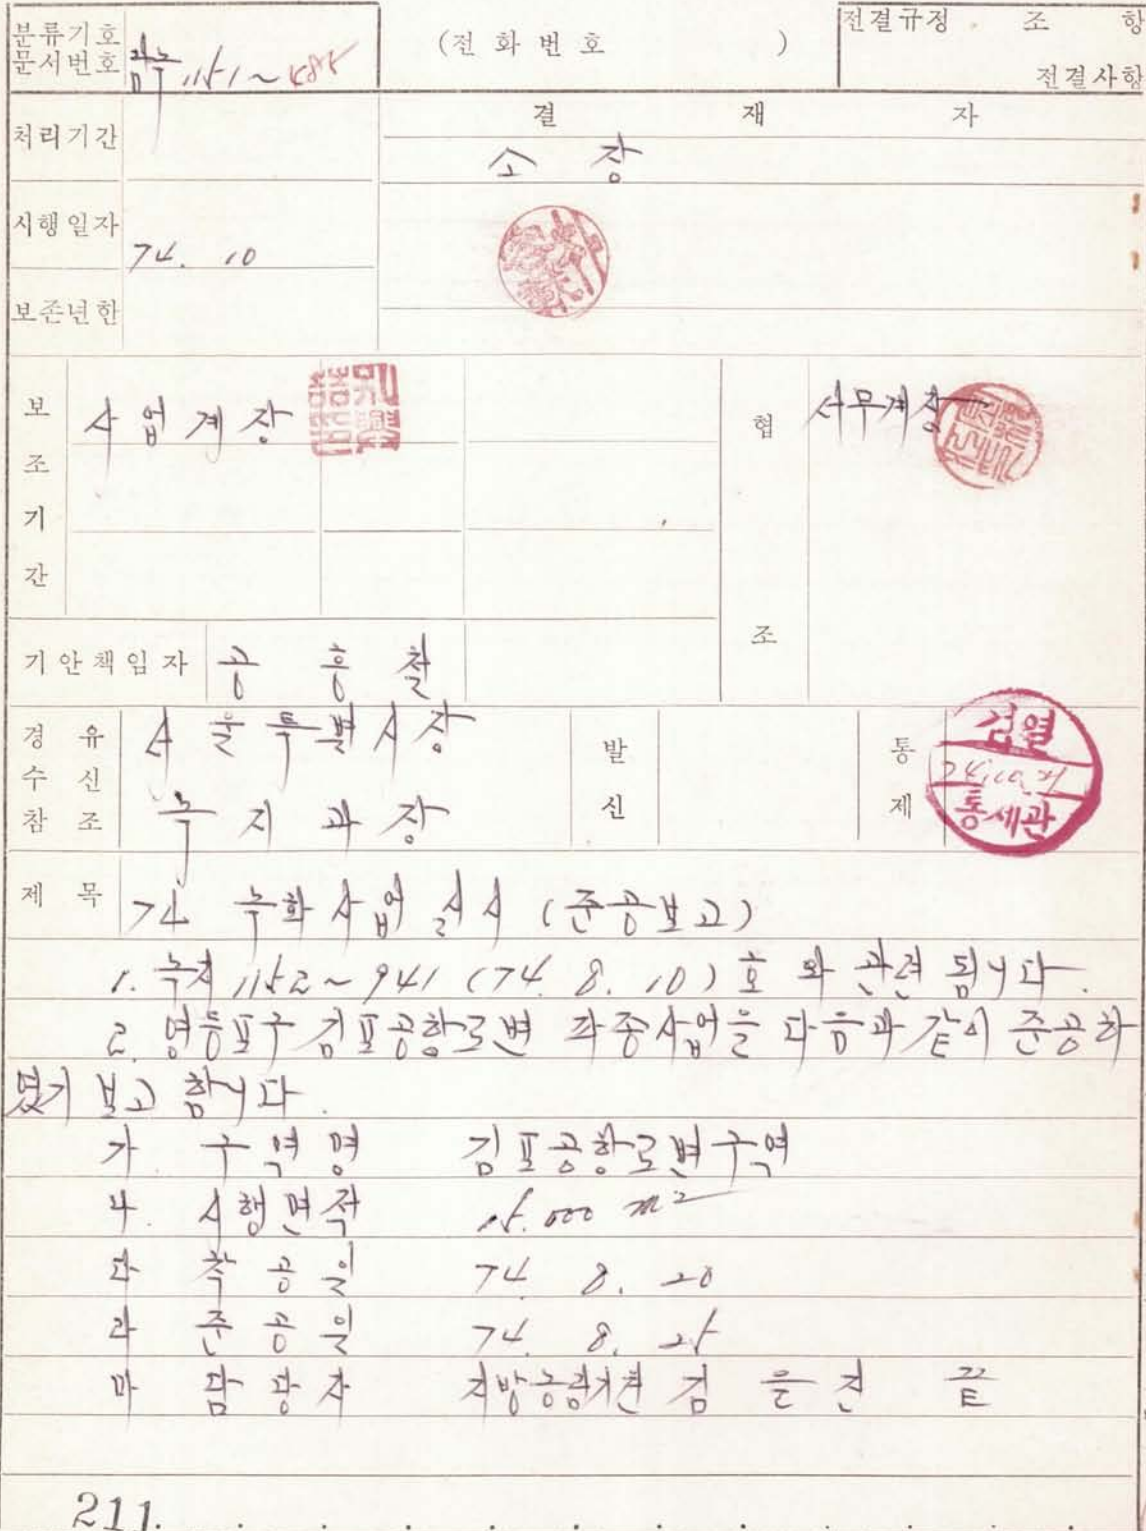 분류기호
문서번호 1151~585
(전 화 번 호 )
전결규정 조 항
전결사항
처리기간
결 재 자
소 장
시행일자 74. 10
보존년한
보조기간 사업계장
협조 서무계장
기안책임자 공 흥 철
경유
수신 서울특별시장
참조 녹지과장
발신
통제
검열
74.10.21
통제관
제목 74 녹화사업 실시 (준공보고)
1. 녹지 1152~941 (74. 8. 10) 호 와 관련 됩니다.
2. 영등포구 김포공항로변 파종사업을 다음과 같이 준공하
였기 보고 합니다.
가. 구역명 김포공항로변구역
나. 시행면적 15.000 m²
다 착공일 74. 8. 20
라 준공일 74. 8. 25
마 담당자 김을건 끝
211